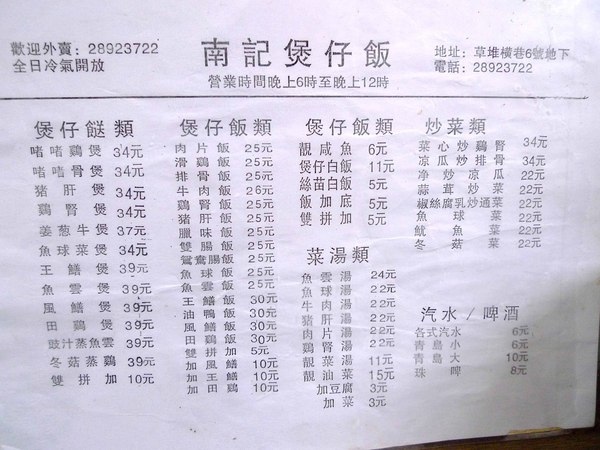 南記煲仔飯
歡迎外賣：28923722
全日冷氣開放
營業時間晚上6時至晚上12時
地址：草堆橫巷6號地下
電話：28923722
煲仔餸類
啫啫鷄煲 34元
啫啫骨煲 34元
猪肝煲 34元
鷄腎煲 34元
姜葱牛煲 37元
魚球菜煲 34元
王鱔煲 39元
魚雲煲 39元
風鱔煲 39元
田鷄煲 39元
豉汁蒸魚雲 39元
冬菇蒸鷄 39元
雙拼加 10元
煲仔飯類
肉片飯 25元
滑鷄飯 25元
排骨飯 25元
牛肉飯 26元
鷄腎飯 25元
猪肝飯 25元
臘味飯 25元
雙腸飯 25元
鴛鴦腸飯 25元
魚球飯 25元
魚雲飯 25元
王鱔飯 30元
油鴨飯 30元
風鱔飯 30元
田鷄飯 30元
雙拼加 5元
加風鱔 10元
加王鱔 10元
加田鷄 10元
煲仔飯類
靚咸魚 6元
煲仔白飯 11元
絲苗白飯 5元
飯加底 5元
雙拼加 5元
菜湯類
魚雲湯 24元
魚球湯 22元
牛肉湯 22元
猪肝湯 22元
肉片湯 22元
鷄腎湯 22元
靚菜湯 11元
靚油菜 15元
加豆腐 3元
加菜 3元
炒菜類
菜心炒鷄腎 34元
凉瓜炒排骨 34元
净炒凉瓜 22元
蒜茸炒菜 22元
椒絲腐乳炒通菜 22元
魚球菜 22元
魷魚菜 22元
冬菇菜 22元
汽水／啤酒
各式汽水 6元
青島小 6元
青島大 10元
珠啤 8元